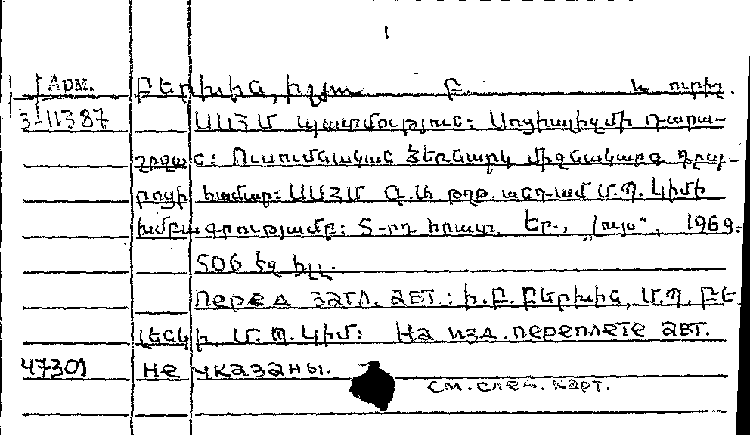 Арм. Բերխին, Իլյա Բ. և ուրիշ.
3-11387 ՍՍՀՄ պատմություն: Սոցիալիզմի դարա-
շրջան: Ուսումնական ձեռնարկ միջնակարգ դպ-
րոցի համար: ՍՍՀՄ Գ.Ա թղթ. անդամ Մ.Պ. Կիմի
խմբագրությամբ: 5-րդ հրատ. Եր., „Լույս“, 1969.
506 էջ իլլ.
Перед загл. авт.: Ի.Բ. Բերխին, Մ.Պ. ԲԵ
լենկի, Մ.Պ. Կիմ: На изд. переплете авт.
47301 не указаны.
см. след. карт.